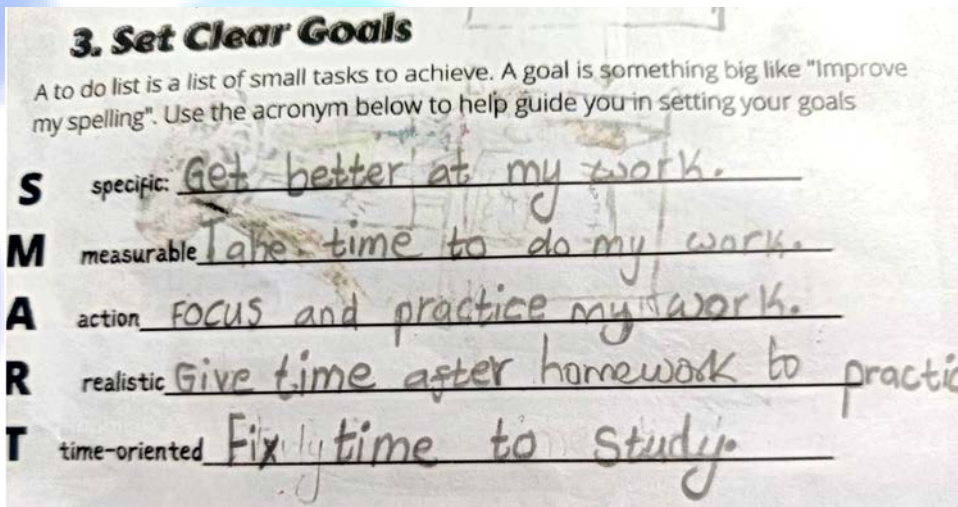 3. Set Clear Goals
A to do list is a list of small tasks to achieve. A goal is something big like "Improve
my spelling". Use the acronym below to help guide you in setting your goals
S specific: Get better at my work.
M measurable Take time to do my work.
A action Focus and practice my work.
R realistic Give time after homework to practic
T time-oriented Fix time to study.